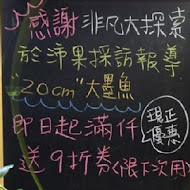 感謝非凡大探索
於沛果採訪報導
"20cm"大墨魚
現正
優惠
即日起滿仟
送9折券(限下次用)